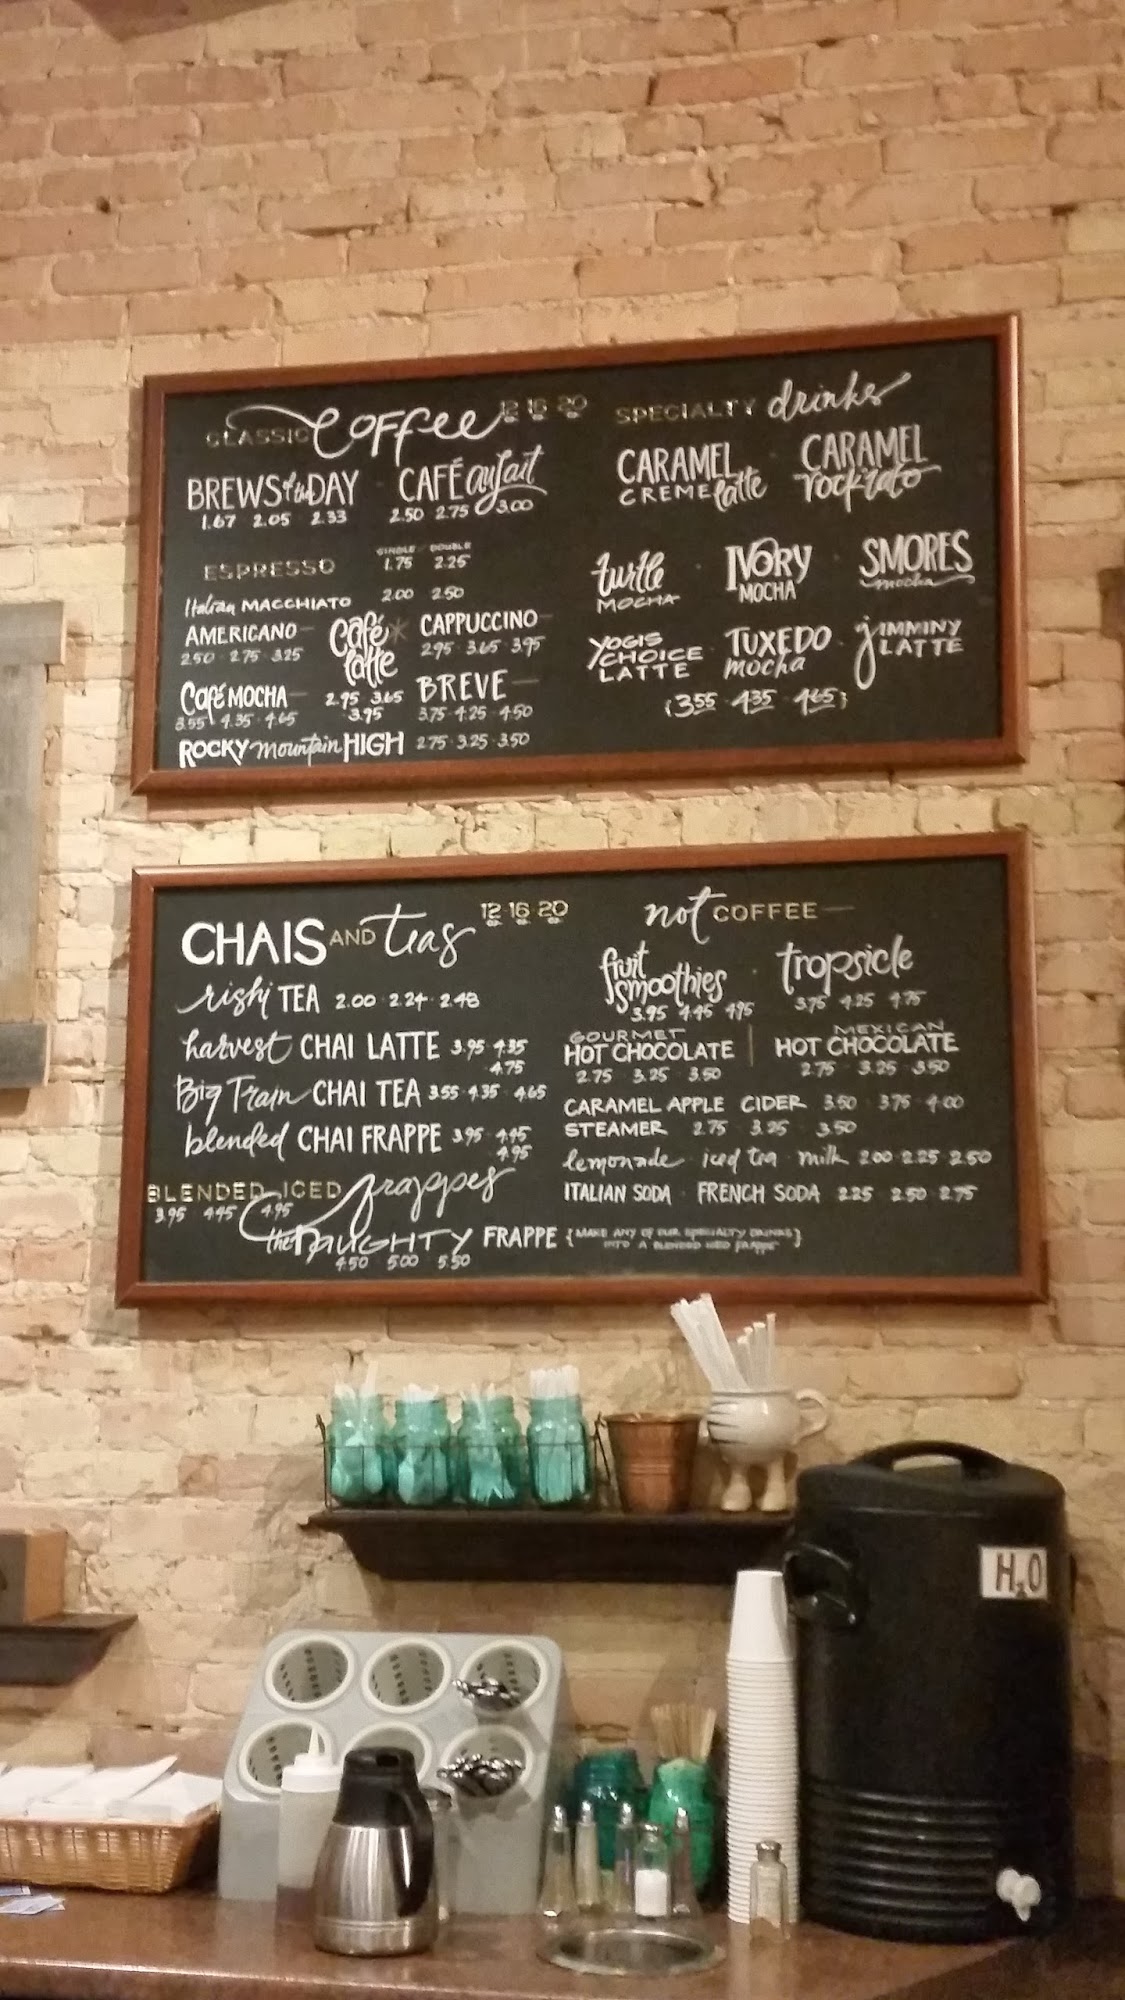 CLASSIC Coffee 12 16 20
BREWS of the DAY · CAFÉ au lait
1.67 2.05 2.33 2.50 2.75 3.00
SINGLE DOUBLE
ESPRESSO 1.75 2.25
Italian MACCHIATO 2.00 2.50
AMERICANO
2.50 · 2.75 · 3.25
Café latte
2.95 3.65
3.95
CAPPUCCINO
2.95 · 3.65 · 3.95
Café MOCHA
3.55 · 4.35 · 4.65
BREVE
3.75 · 4.25 · 4.50
ROCKY mountain HIGH 2.75 · 3.25 · 3.50
SPECIALTY drinks
CARAMEL CREME latte · CARAMEL rockiato
turtle MOCHA · IVORY MOCHA · SMORES mocha
YOGIS CHOICE LATTE · TUXEDO mocha · JIMMINY LATTE
{3.55 · 4.35 · 4.65}
CHAIS AND teas 12 16 20
rishi TEA 2.00 · 2.24 · 2.48
harvest CHAI LATTE 3.95 · 4.35
4.75
Big Train CHAI TEA 3.55 · 4.35 · 4.65
blended CHAI FRAPPE 3.95 · 4.45
4.95
BLENDED ICED frappes
3.95 4.45 4.95
the NAUGHTY FRAPPE {MAKE ANY OF OUR SPECIALTY DRINKS
INTO A BLENDED ICED FRAPPE}
4.50 5.00 5.50
not COFFEE
fruit smoothies · tropsicle
3.95 4.45 4.95 3.75 4.25 4.75
GOURMET HOT CHOCOLATE | MEXICAN HOT CHOCOLATE
2.75 3.25 3.50 2.75 · 3.25 · 3.50
CARAMEL APPLE CIDER 3.50 · 3.75 · 4.00
STEAMER 2.75 3.25 3.50
lemonade · iced tea · milk 2.00 · 2.25 · 2.50
ITALIAN SODA · FRENCH SODA 2.25 2.50 2.75
H₂O